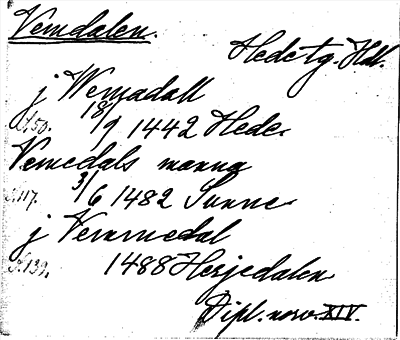 Vemdalen.
Hede tg. Hdl.
j Wemadall
s. 50. 18/9 1442 Hede.
Vemedals manna
s. 117. 3/6 1482 Sunne.
j Vemmedal
s. 139. 1488 Herjedalen
Dipl. norv. XIV.